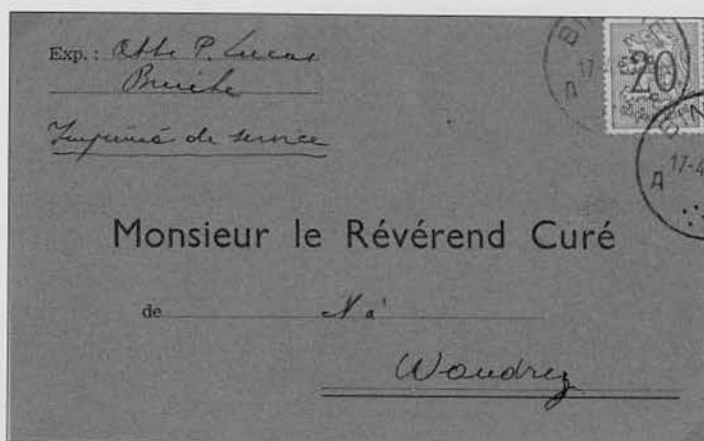 Exp. : Abbé P. Lucas
Imprimé de service
20
BIN
17-4
A
Monsieur le Révérend Curé
de N à
Waudrez